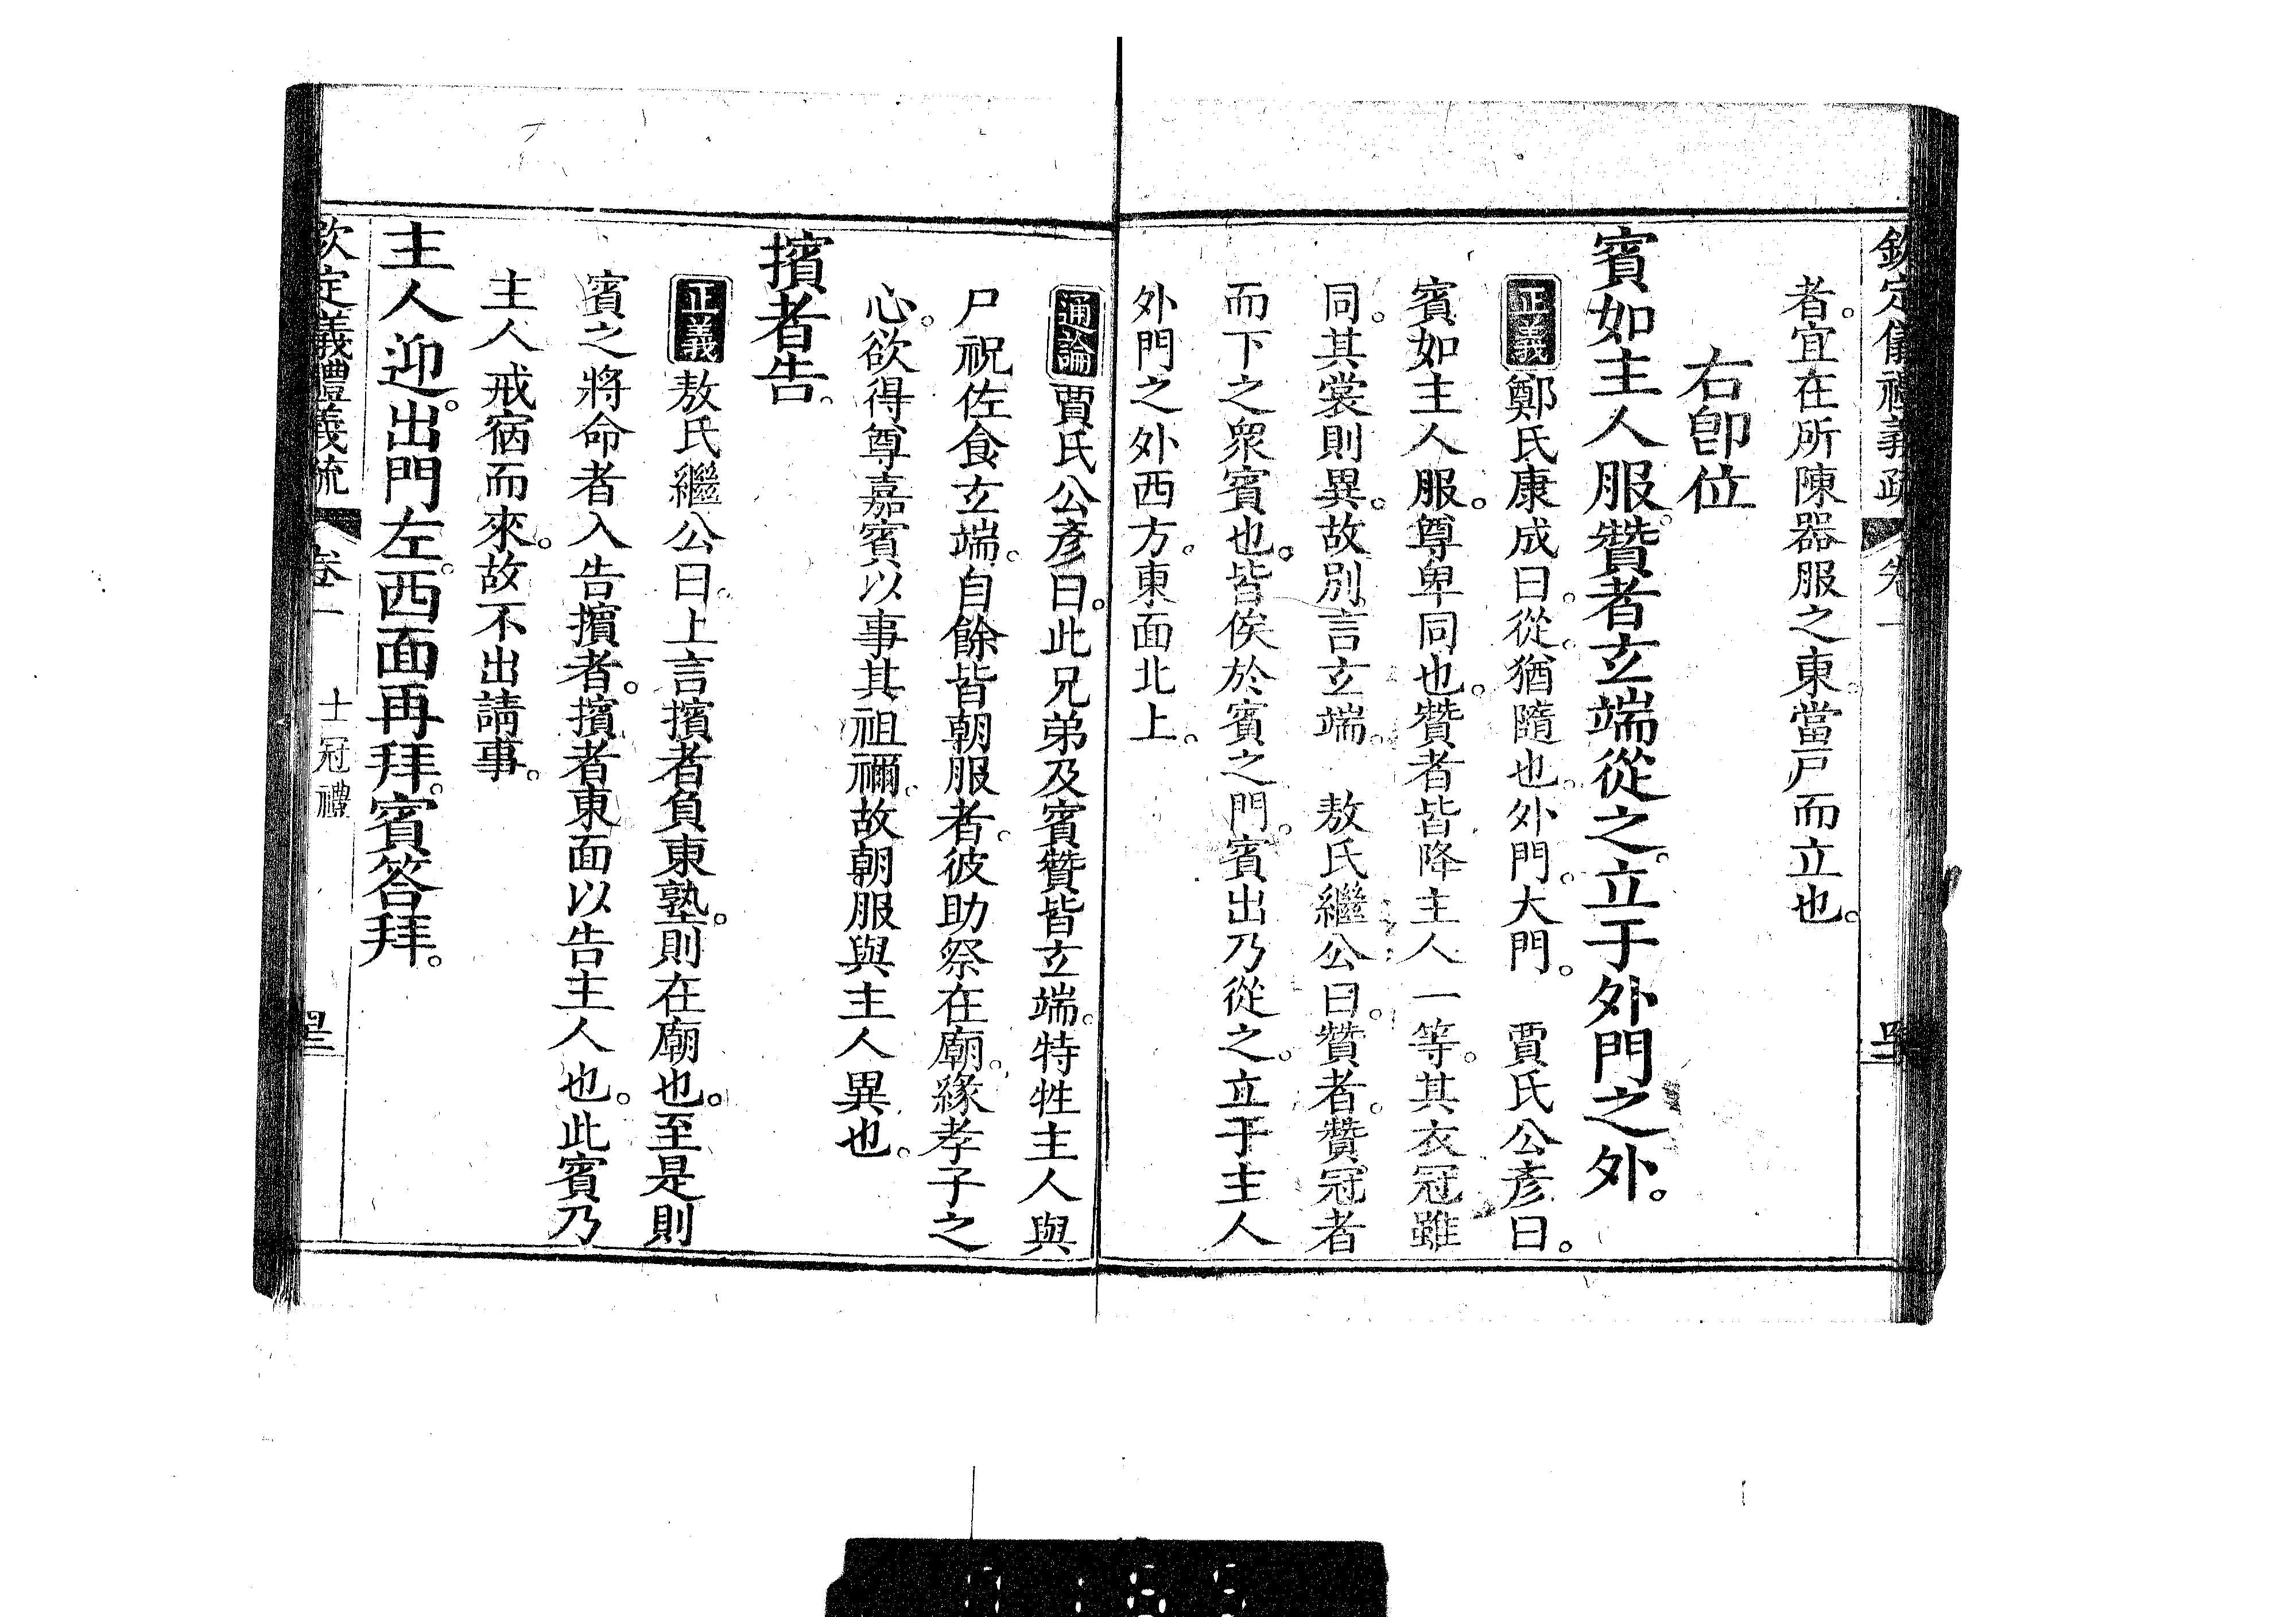 欽定儀禮義疏 卷一
者。宜在所陳器服之東。當戶而立也。
右卽位
賓如主人服。贊者玄端從之。立于外門之外。
正義 鄭氏康成曰。從。猶隨也。外門。大門。 賈氏公彥曰。
賓如主人服。尊卑同也。贊者皆降主人一等。其衣冠雖
同。其裳則異。故別言玄端。 敖氏繼公曰。贊者。贊冠者
而下之衆賓也。皆俟於賓之門。賓出乃從之。立于主人
外門之外西方。東面北上。
通論 賈氏公彥曰。此兄弟及賓贊皆玄端。特牲主人與
尸祝佐食玄端。自餘皆朝服者。彼助祭在廟。緣孝子之
心。欲得尊嘉賓以事其祖禰。故朝服與主人異也。
擯者告。
正義 敖氏繼公曰。上言擯者負東塾。則在廟也。至是則
賓之將命者入告擯者。擯者東面以告主人也。此賓乃
主人戒宿而來。故不出請事。
主人迎。出門左。西面再拜。賓答拜。
欽定義禮義疏 卷一 士冠禮